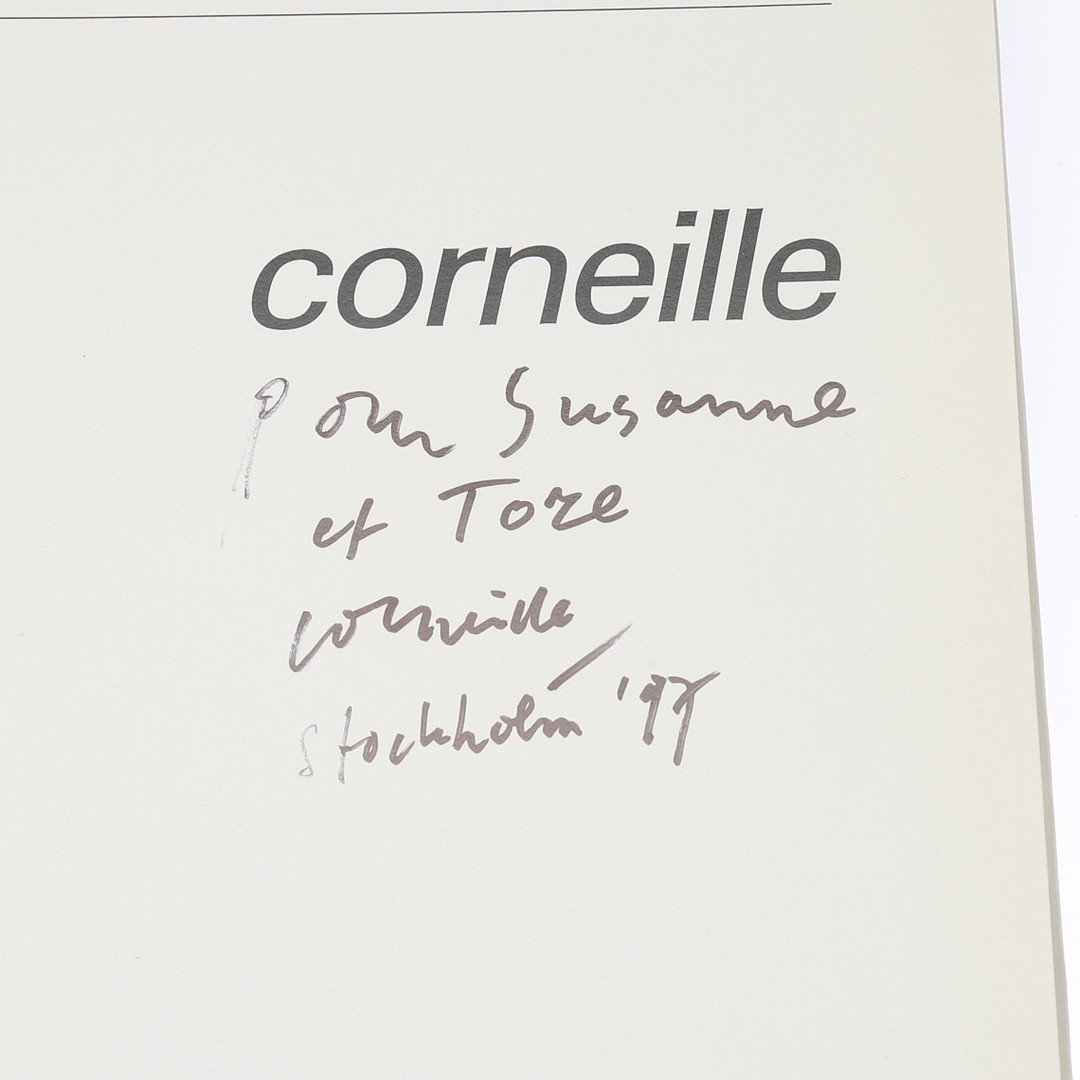 corneille
Pour Susanne
et Tore
corneille
Stockholm '97